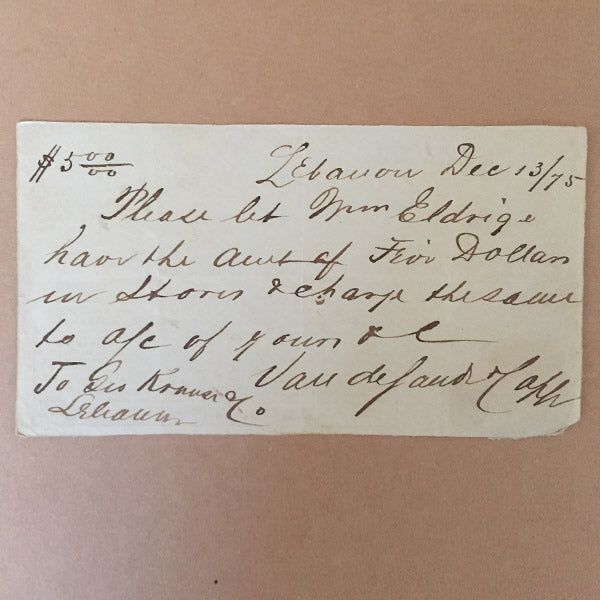 $5 00/00
Lebanon Dec 13/75
Please let Wm Eldrige
have the amt of Five Dollars
in Stores & charge the same
to a/c of yours &c
Vandesand &
To Geo Krause & Co
Lebanon